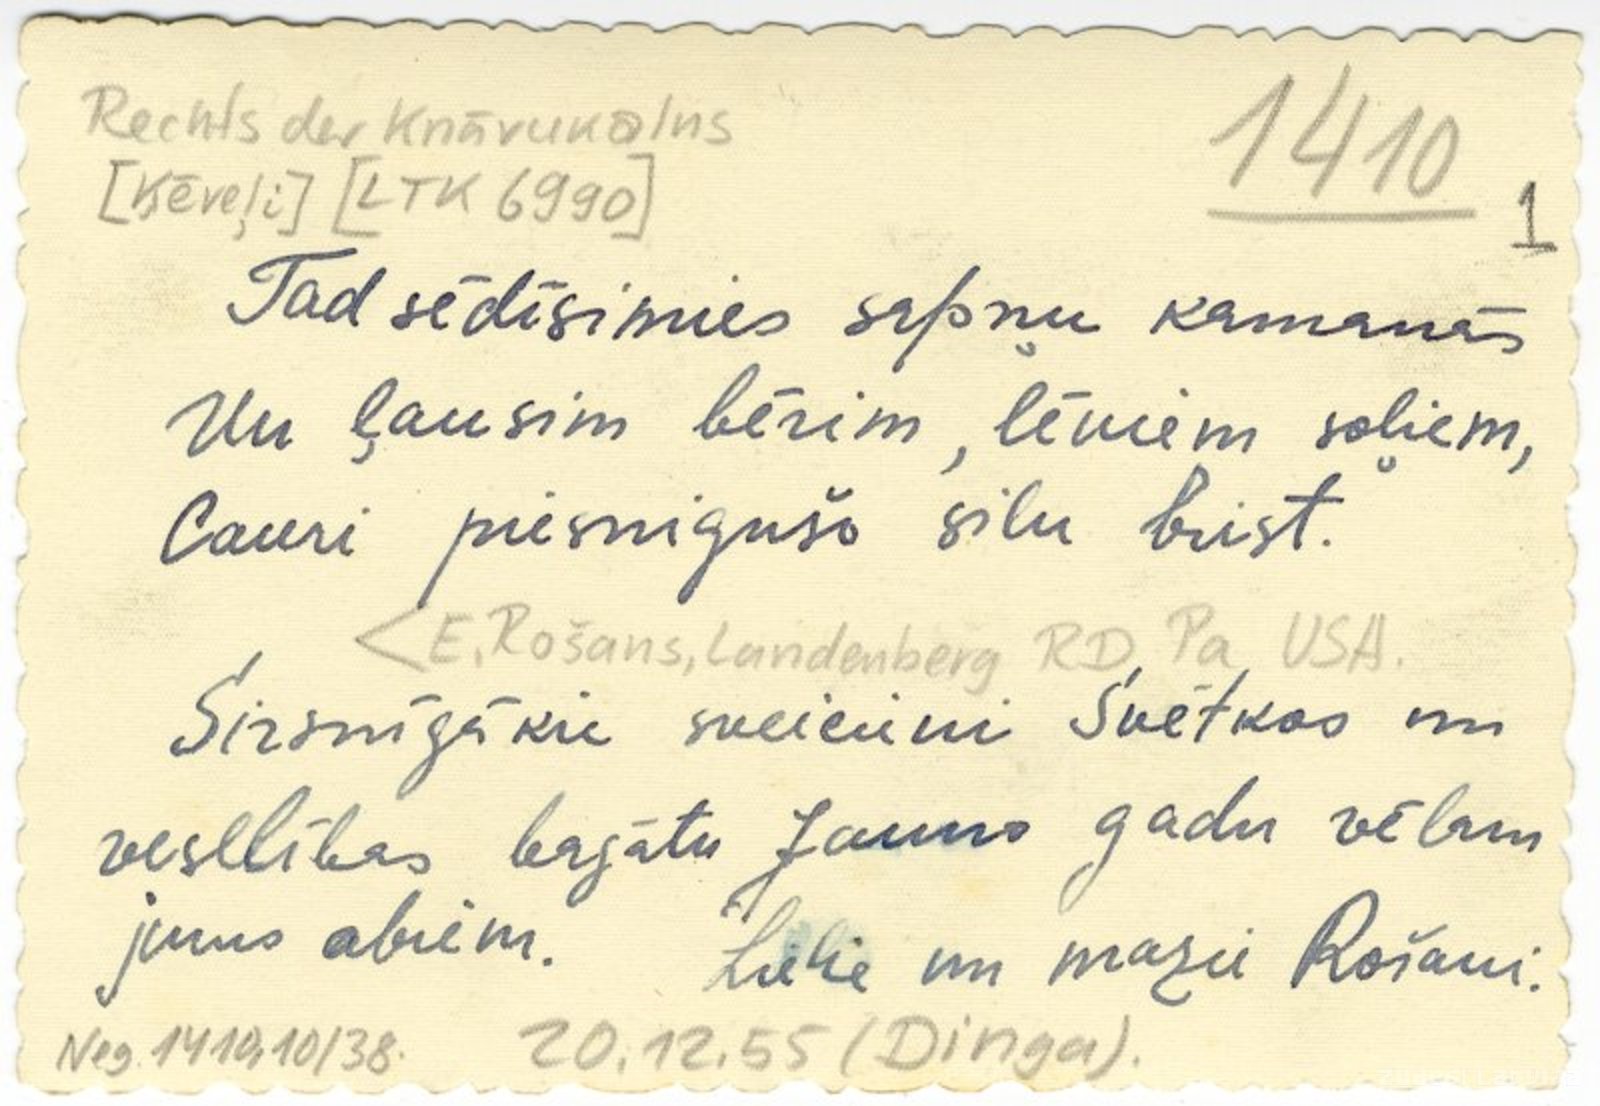 Rechts der Knāvukalns
1410
[Ķēveļi] [LTK 6990]
1
Tad sēdīsimies sapņu kamanās
Un ļausim bērim, lēniem soļiem,
Cauri piesnigušo silu brist.
<E. Rošāns, Landenberg RD Pa USA.
Sirsnīgākie sveicieni Svētkos un
veselības bagātu Jauno gadu vēlam
jums abiem. Lielie un mazie Rošāni.
Neg. 1410,10/38. 20.12.55 (Dinga).